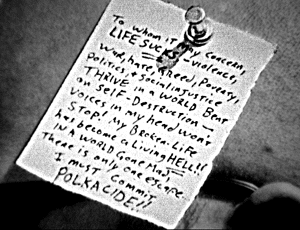 To Whom it May Concern,
LIFE SUCKS - violence,
War, hate, Greed, Poverty,
Politics, + Social injustice
THRIVE in a WORLD Bent
on SELF-Destruction -
Voices in my head won't
STOP! My Broken Life
has become a Living HELL!!
IN A WORLD Gone Mad
There is only one escape..
I must commit
POLKACIDE!!